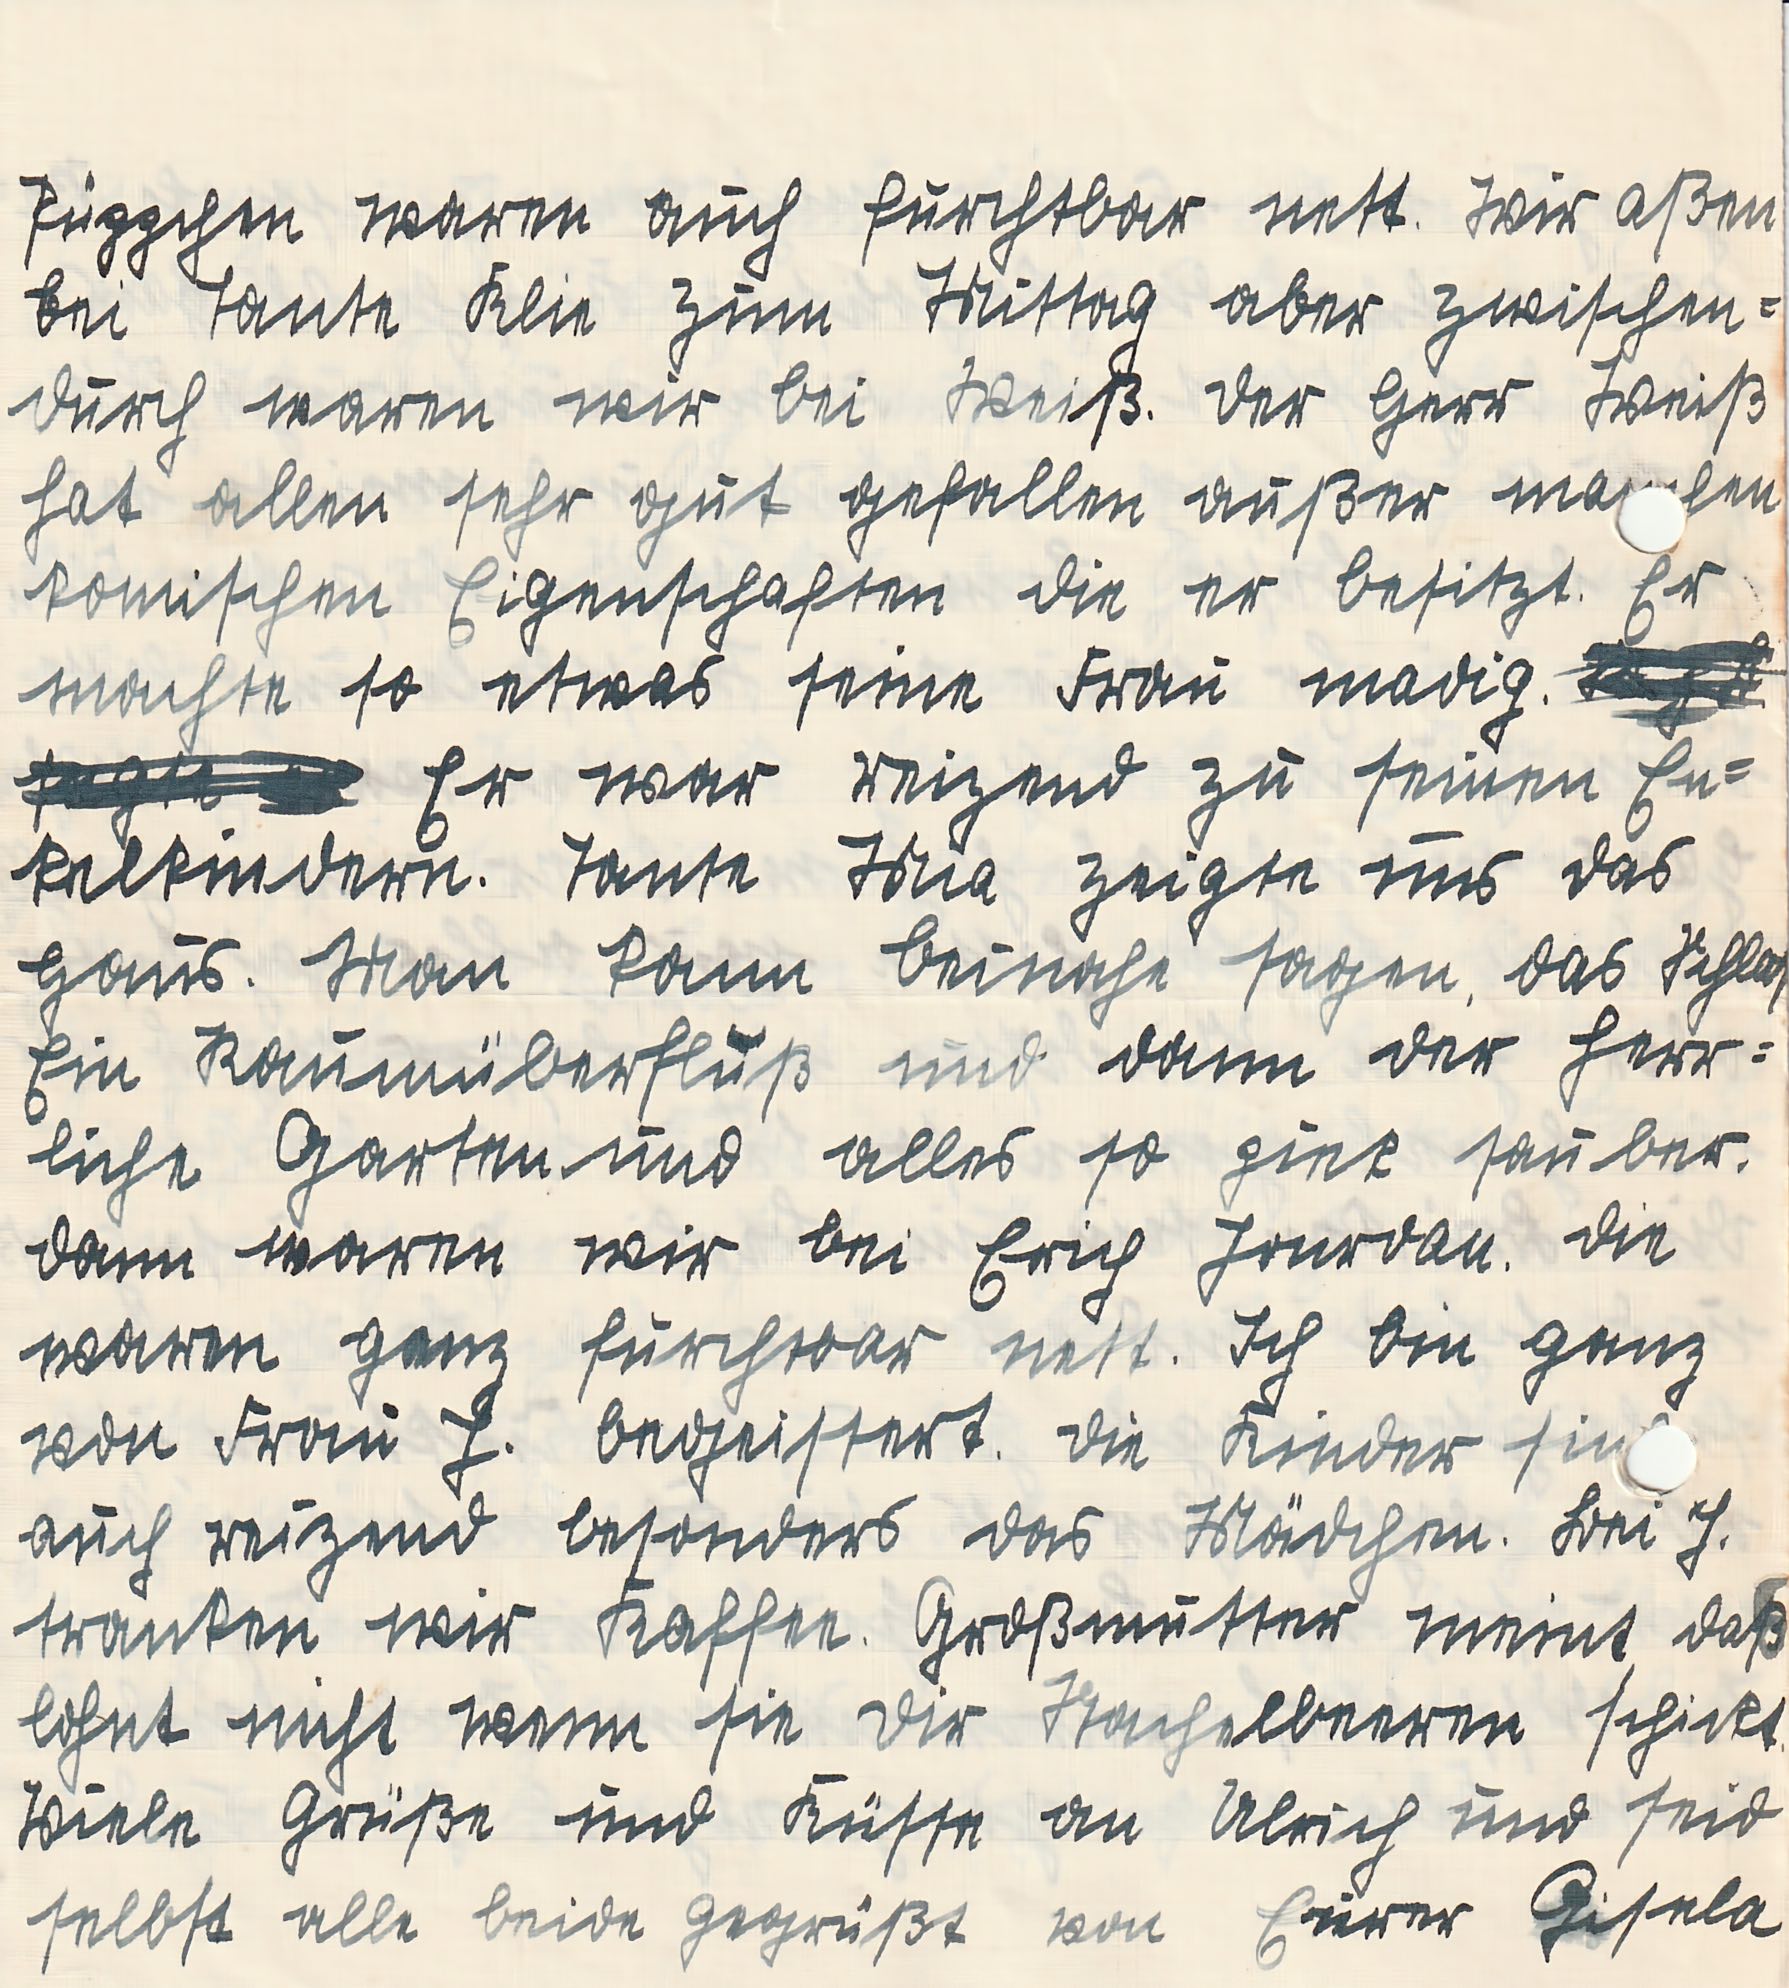 Püppchen waren auch furchtbar nett. Wir aßen
bei Tante Klie zum Mittag aber zwischen=
durch waren wir bei Weiß. der Herr Weiß
hat allen sehr gut gefallen außer manchen
komischen Eigenschaften die er besitzt. Er
machte so etwas seine Frau madig.
Er war reizend zu seinen En=
kelkindern. Tante Mia zeigte uns das
Haus. Man kann beinahe sagen, das Schloß
Ein Raumüberfluß und dann der herr=
liche Garten und alles so piek sauber.
dann waren wir bei Erich Jourdan. die
waren ganz furchtbar nett. Ich bin ganz
von Frau J. begeistert. die Kinder sind
auch reizend besonders das Mädchen. Bei J.
tranken wir Kaffee. Großmutter meint daß
lohnt nicht wenn sie dir Stachelbeeren schickt.
Viele Grüße und Küsse an Ulrich und seid
selbst alle beide gegrüßt von Eurer Gisela